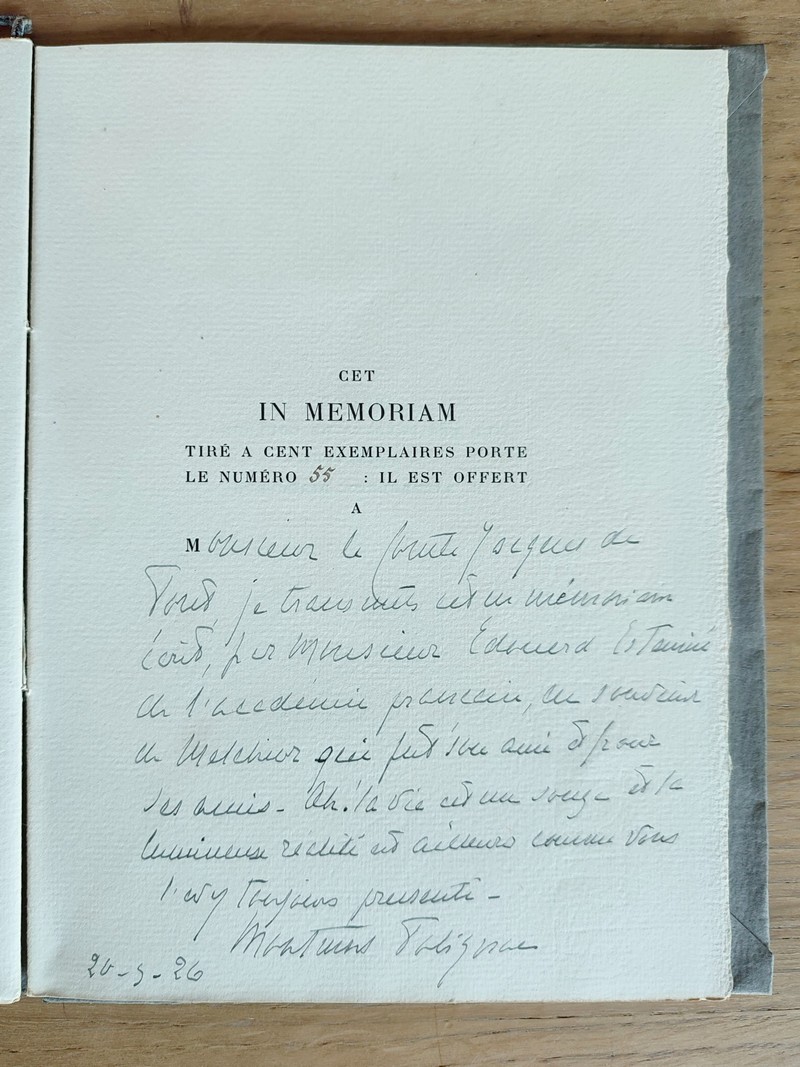 CET
IN MEMORIAM
TIRÉ A CENT EXEMPLAIRES PORTE
LE NUMÉRO 55 : IL EST OFFERT
A
Monsieur le Comte Jacques de
je transmets cet in mémoriam
écrit, par Monsieur Edouard Estaunié
de l'académie française, en souvenir
de Melchior qui fut son ami et pour
ses amis - Ah! la vie est un songe et la
lumineuse réalité est ailleurs comme vous
l'avez toujours pressenti -
Polignac
26